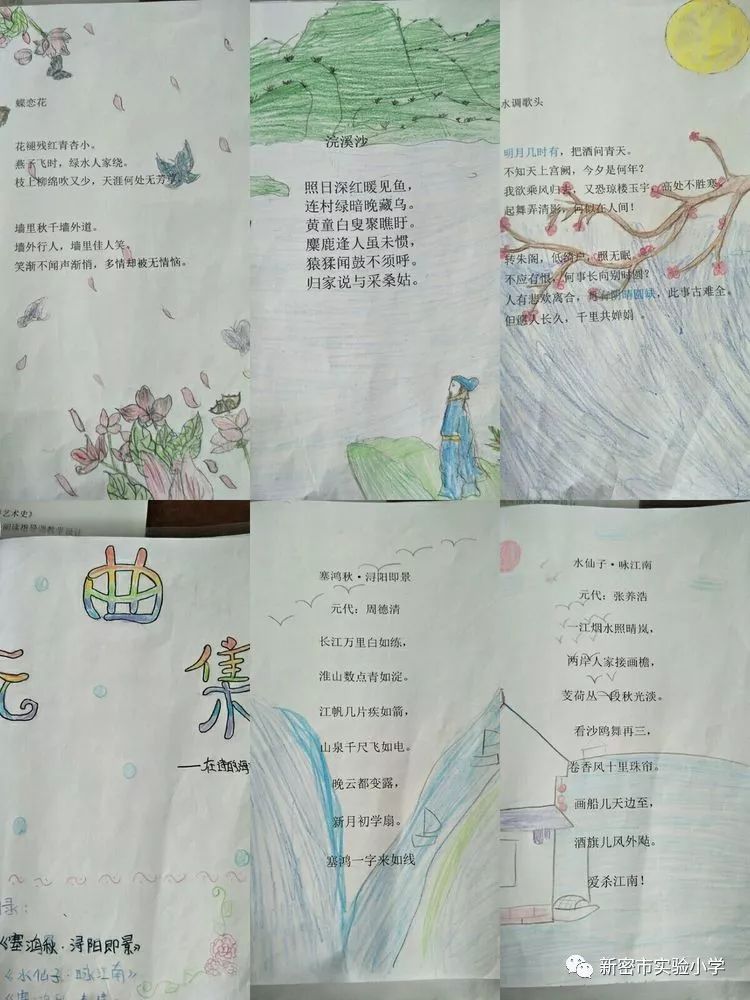 蝶恋花
花褪残红青杏小。
燕子飞时，绿水人家绕。
枝上柳绵吹又少，天涯何处无芳
墙里秋千墙外道。
墙外行人，墙里佳人笑。
笑渐不闻声渐悄，多情却被无情恼。
浣溪沙
照日深红暖见鱼，
连村绿暗晚藏乌。
黄童白叟聚睢盱。
麋鹿逢人虽未惯，
猿猱闻鼓不须呼。
归家说与采桑姑。
水调歌头
明月几时有，把酒问青天。
不知天上宫阙，今夕是何年？
我欲乘风归去，又恐琼楼玉宇，高处不胜寒。
起舞弄清影，何似在人间！
转朱阁，低绮户，照无眠。
不应有恨，何事长向别时圆？
人有悲欢离合，月有阴晴圆缺，此事古难全。
但愿人长久，千里共婵娟。
艺术史》
阅读指导课教学设计
曲
元 集
——在诗的海
录：
《塞鸿秋·浔阳即景》
《水仙子·咏江南》
塞鸿秋·浔阳即景
元代：周德清
长江万里白如练，
淮山数点青如淀。
江帆几片疾如箭，
山泉千尺飞如电。
晚云都变露，
新月初学扇。
塞鸿一字来如线
水仙子·咏江南
元代：张养浩
一江烟水照晴岚，
两岸人家接画檐，
芰荷丛一段秋光淡。
看沙鸥舞再三，
卷香风十里珠帘。
画船儿天边至，
酒旗儿风外飐。
爱杀江南！
新密市实验小学